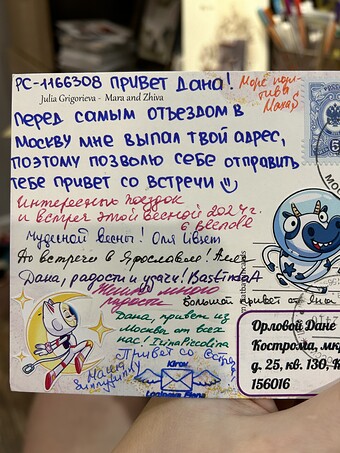 РС-1166308 ПРИВЕТ ДАНА!
Julia Grigorieva - Mara and Zhiva
Море пози-
тива
ПЕРЕД САМЫМ ОТЪЕЗДОМ В
МОСКВУ МНЕ ВЫПАЛ ТВОЙ АДРЕС,
ПОЭТОМУ ПОЗВОЛЮ СЕБЕ ОТПРАВИТЬ
ТЕБЕ ПРИВЕТ СО ВСТРЕЧИ
Интересных поездок
и встреч этой весной 2024г.
Чудесной весны! Оля
До встречи в Ярославле!
Дана, радости и удачи! BastindaA
много
радости
Большой привет от
Дана, привет из
Москвы от всех
нас! IrinaPiccolina
Привет со встречи
Маша
Kirov
Orlova Elena
Орловой Дане
Кострома, мкр
д. 25, кв. 130, К
156016